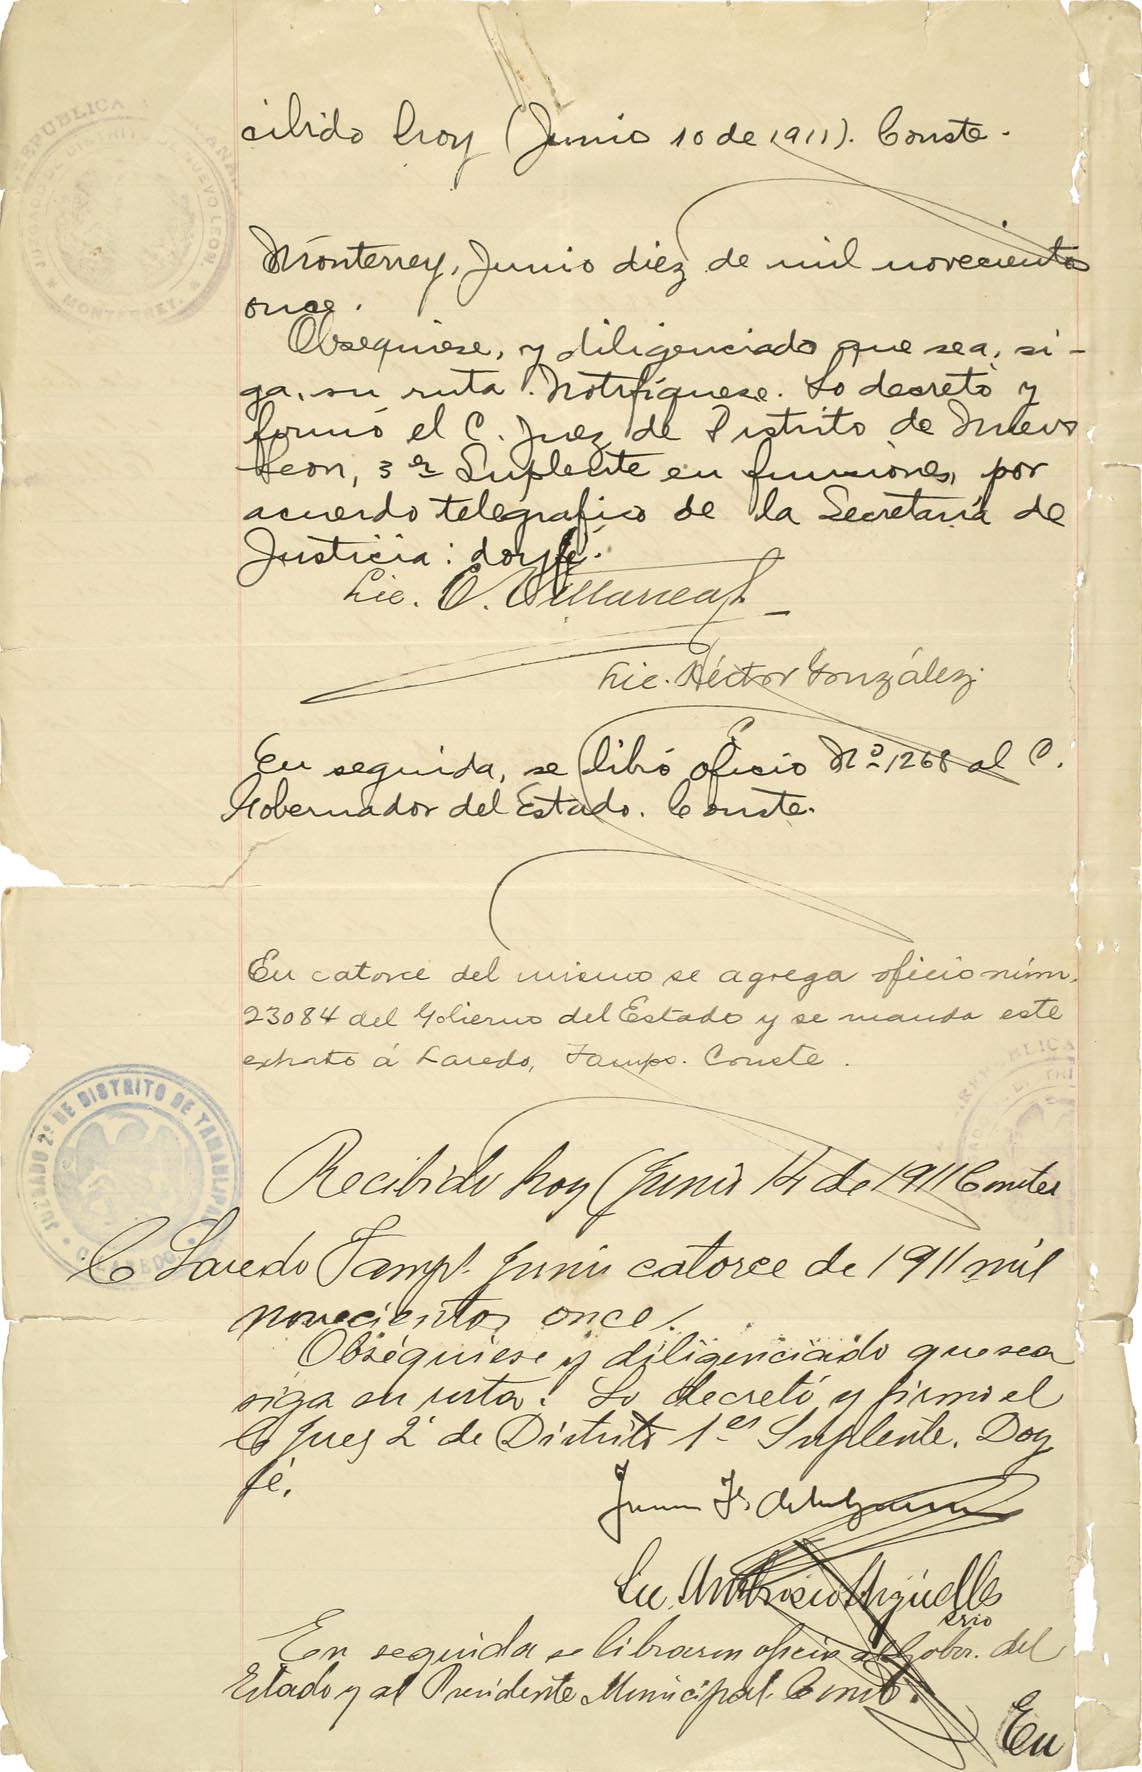 cibido hoy (Junio 10 de 1911). Conste.
Monterrey, Junio diez de mil novecientos
once.
Obsequiese, y diligenciado que sea, si-
ga, su ruta. Notifíquese. Lo decretó y
firmó el C. Juez de Distrito de Nuevo
Leon, 3er Suplente en funciones, por
acuerdo telegrafico de la Secretaría de
Justicia: doy fé.
Lic. E. Villarreal
Lic. Héctor González.
En seguida, se libró oficio No. 1268 al C.
Gobernador del Estado. Conste.
En catorce del mismo se agrega oficio núm.
23084 del Gobierno del Estado y se manda este
exhorto á Laredo, Tamps. Conste.
JUZGADO 2º DE DISTRITO DE TAMAULIPAS
Recibido hoy (Junio 14 de 1911 Conste
C Laredo Tamps. Junio catorce de 1911 mil
novecientos once.
Obséquiese y diligenciado que sea
siga su ruta. Lo decretó y firmó el
C Juez 2º de Distrito 1er Suplente. Doy
fé.
Juan F.
Lic. Ambrosio Argüelles
srio
En seguida se libraron oficio al Gobor. del
Estado y al Presidente Municipal. Conste.
En
REPUBLICA
NUEVO LEON.
MONTERREY.